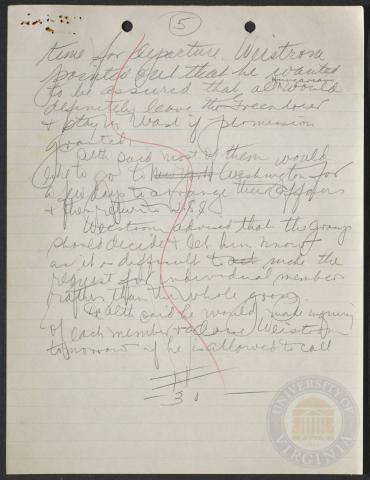 5
time for departure. Weistrom
pointed out that he wanted
to be assured that all Hungarians would
definitely leave the Greenbrier
& stay in Wash if permission
granted.
said most of them would
to go to New York Washington for
a few days to arrange their affairs
& then return to
Weistrom advised that the group
should decide & let him know
as it is difficult to make the
request for individual members
rather than the whole group.
said he would make inquiry
of each member & advise Weistrom
tomorrow if he is allowed to call
31
UNIVERSITY OF VIRGINIA